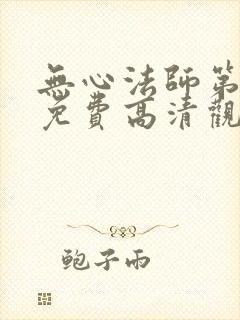 無心法師第
免費高清觀
鲍子雨